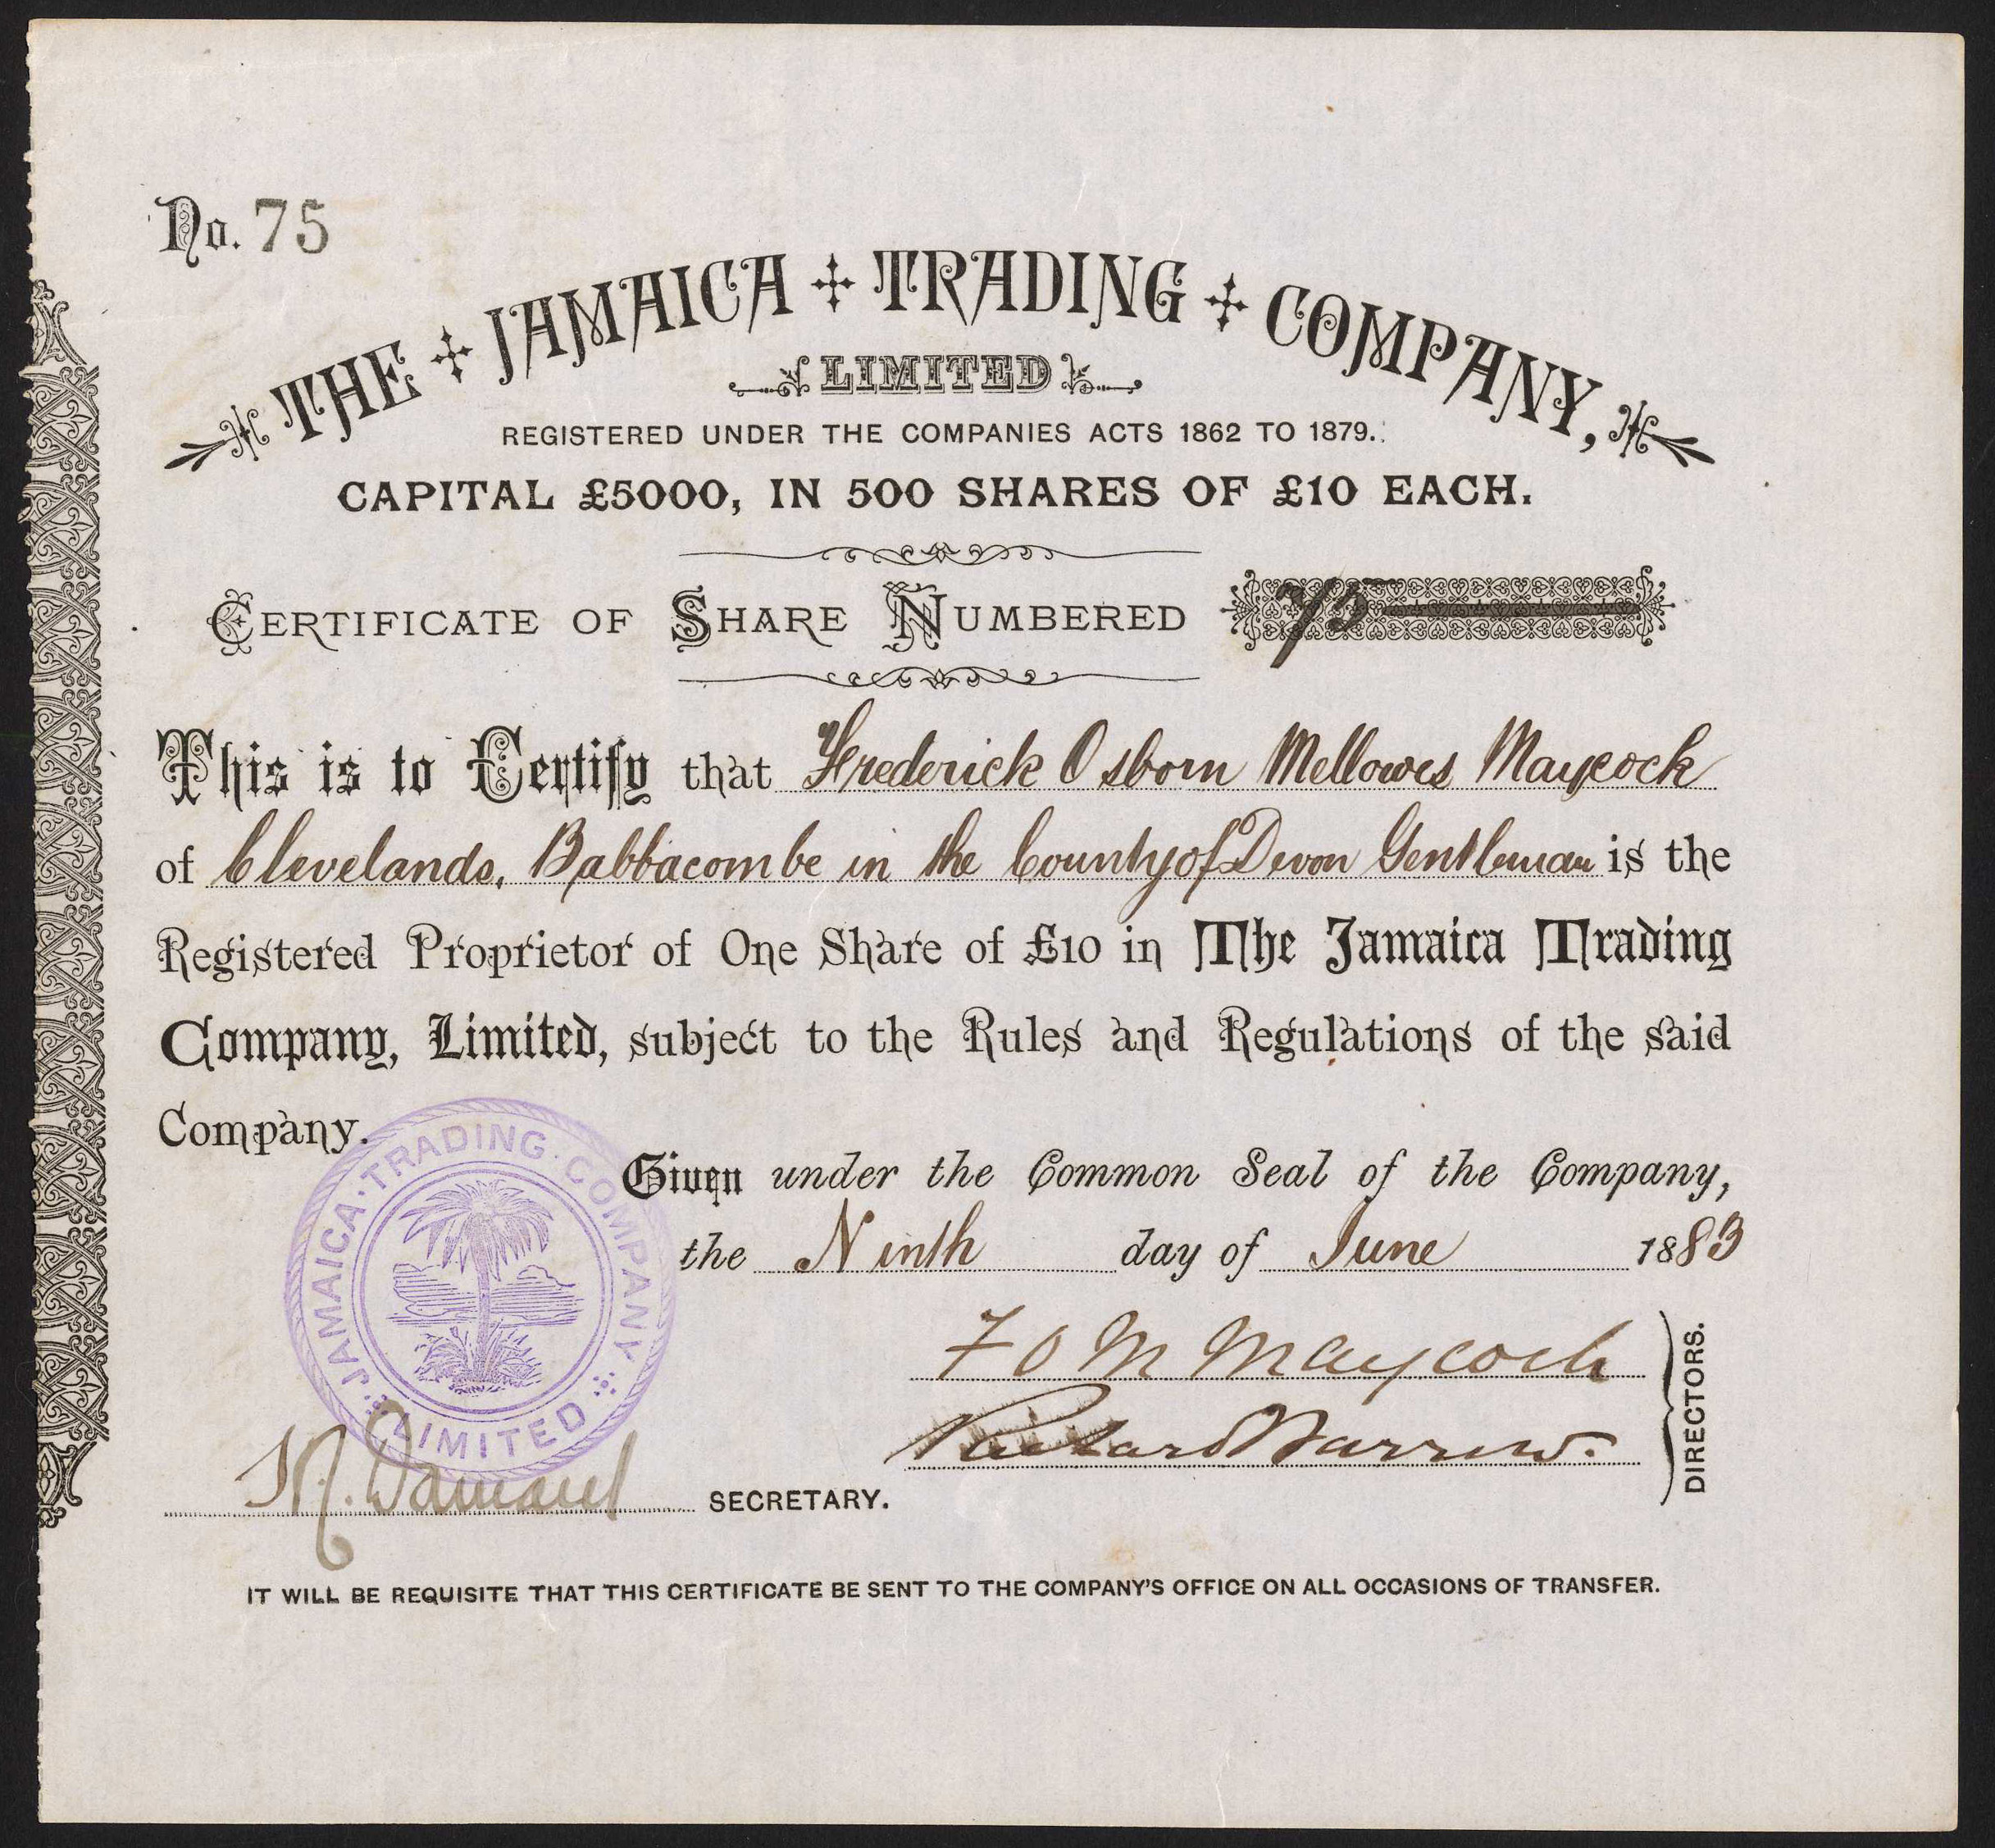 No. 75
THE JAMAICA TRADING COMPANY,
LIMITED
REGISTERED UNDER THE COMPANIES ACTS 1862 TO 1879.
CAPITAL £5000, IN 500 SHARES OF £10 EACH.
CERTIFICATE OF SHARE NUMBERED 75
This is to Certify that Frederick Osborn Mellowes Maycock
of Clevelands, Babbacombe in the County of Devon Gentleman is the
Registered Proprietor of One Share of £10 in The Jamaica Trading
Company, Limited, subject to the Rules and Regulations of the said
Company.
JAMAICA · TRADING · COMPANY
LIMITED
Given under the Common Seal of the Company,
the Ninth day of June 1883
F O M Maycock
Richard
DIRECTORS.
SECRETARY.
IT WILL BE REQUISITE THAT THIS CERTIFICATE BE SENT TO THE COMPANY'S OFFICE ON ALL OCCASIONS OF TRANSFER.